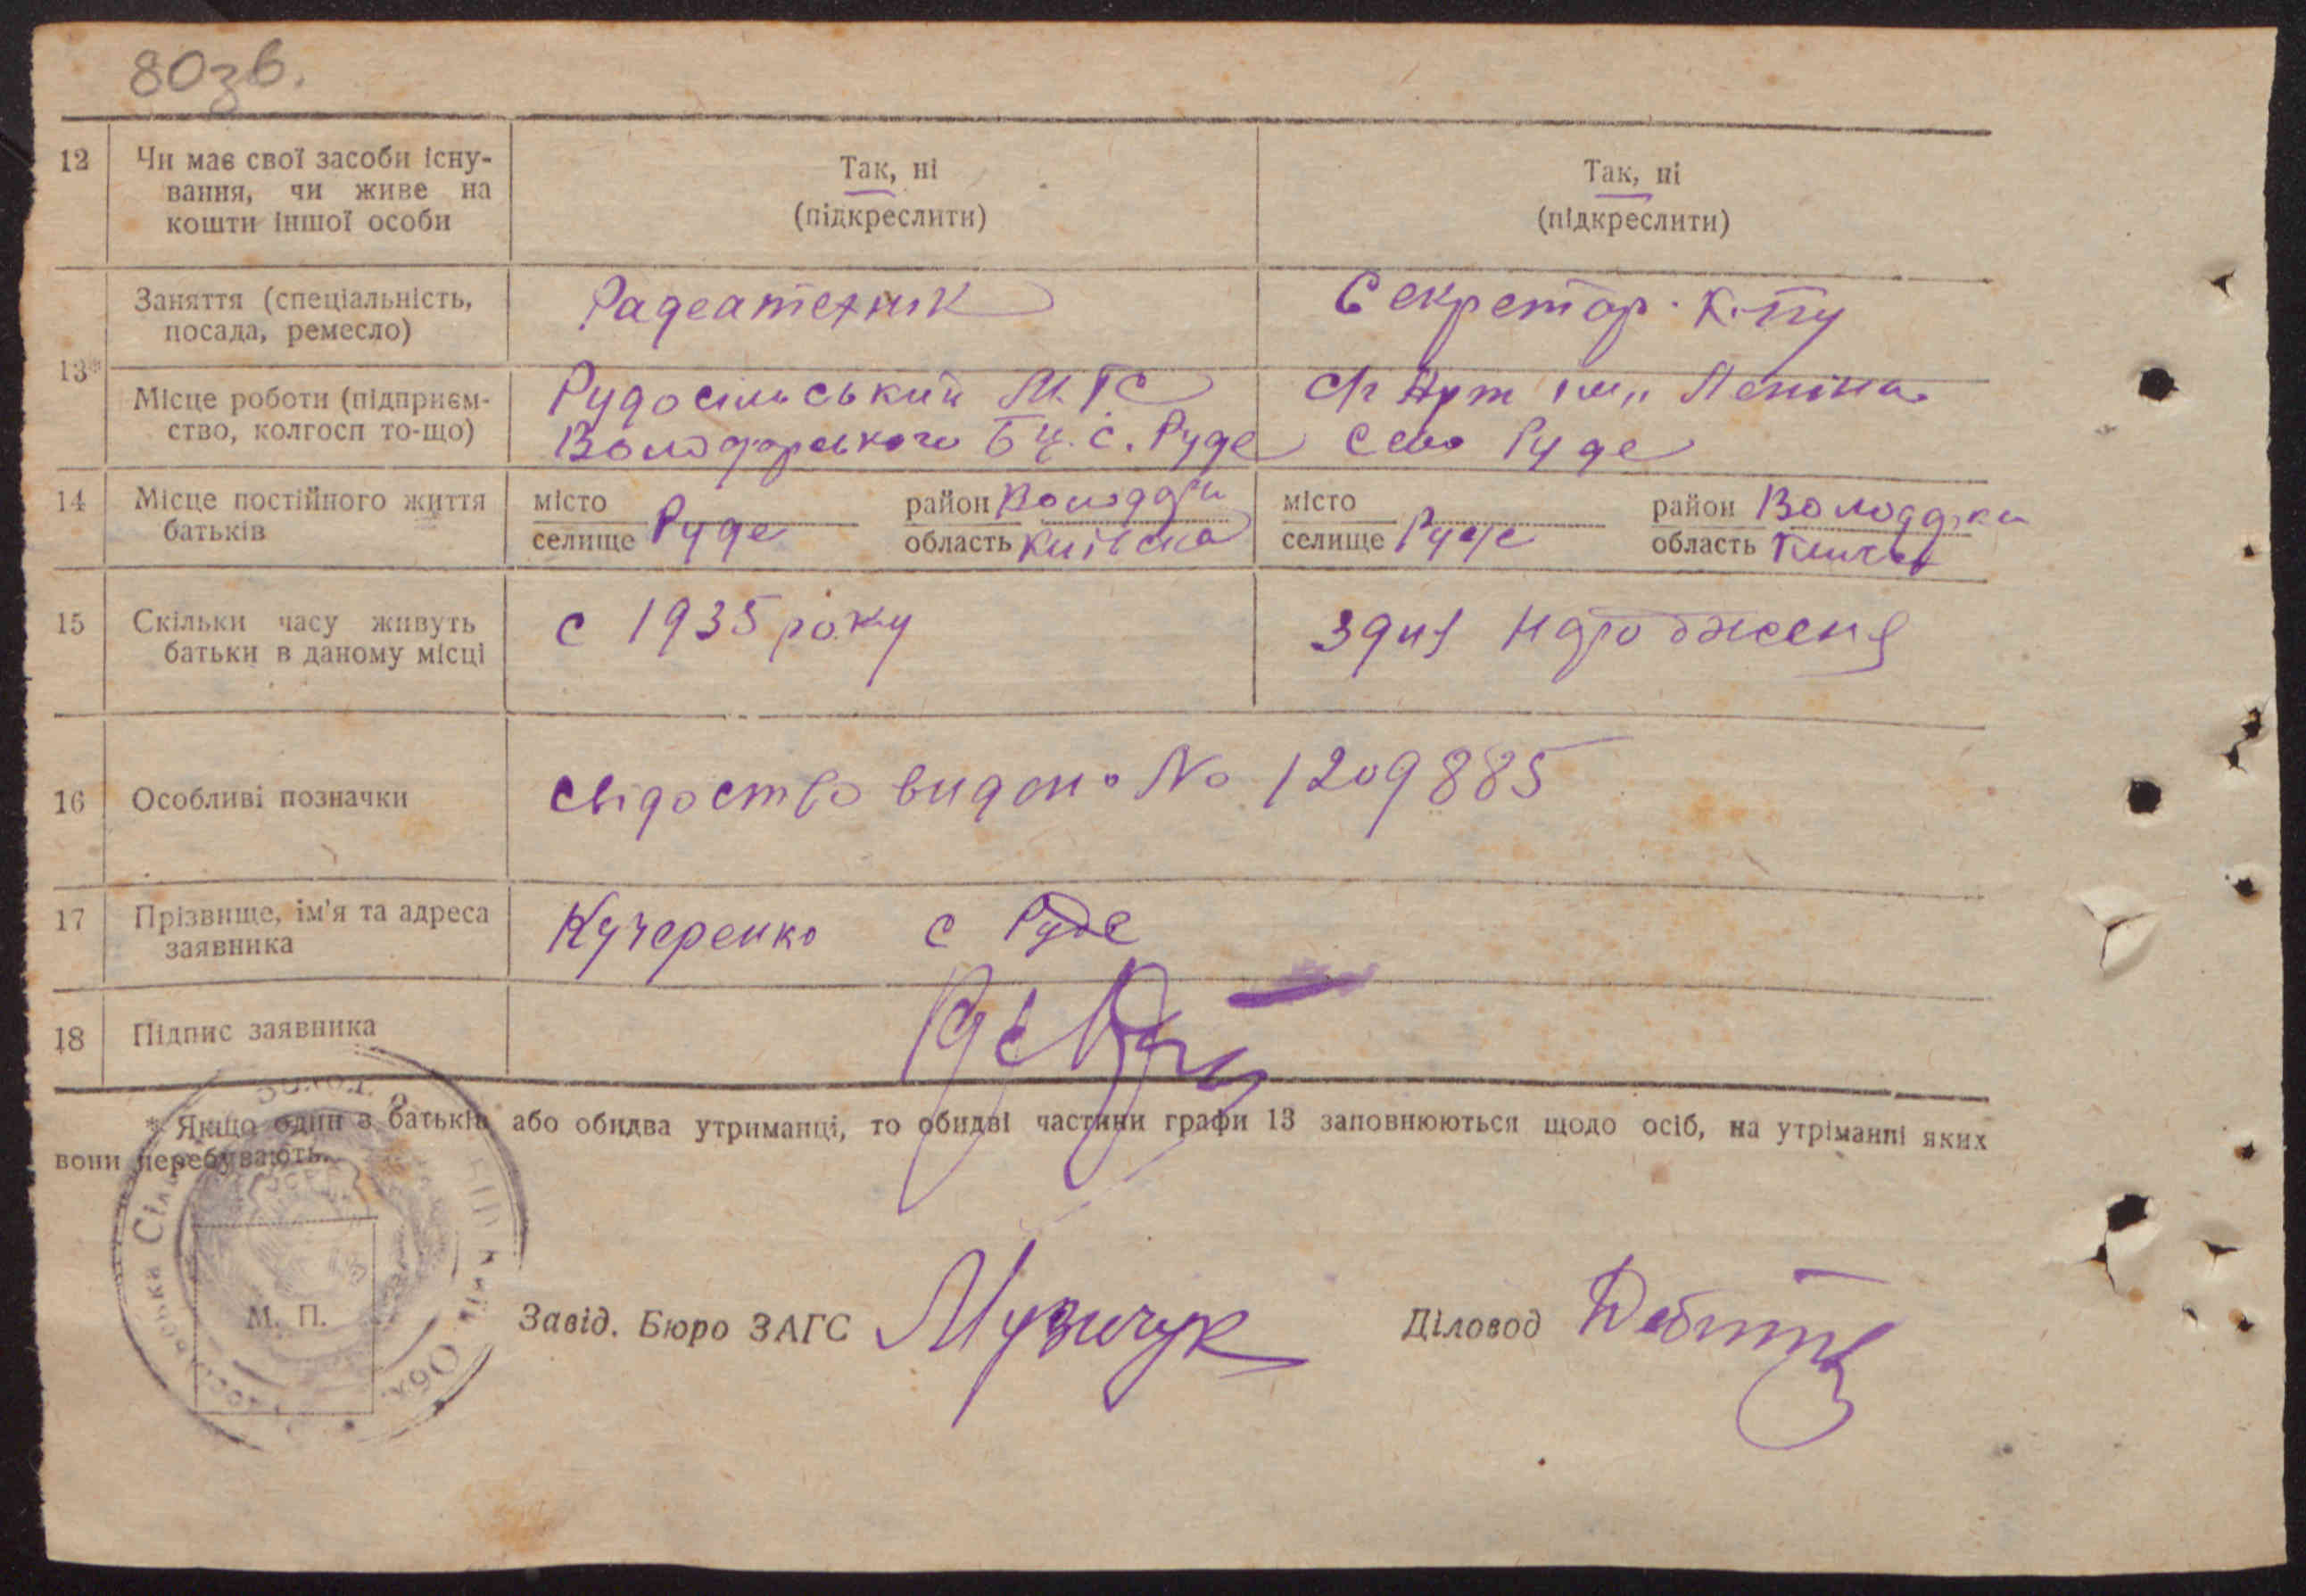 80зв.
12 Чи має свої засоби існу-
вання, чи живе на
кошти іншої особи
Так, ні
(підкреслити)
Так, ні
(підкреслити)
13*
Заняття (спеціальність,
посада, ремесло)
Радеатехник
Секретар К-ту
Місце роботи (підприєм-
ство, колгосп то-що)
Рудосільський МТС
Володарського Бц. с. Руде
Арт ім., Леніна
Село Руде
14 Місце постійного життя
батьків
місто
селище Руде
район Володарки
область Київска
місто
селище Руде
район Володарки
область
15 Скільки часу живуть
батьки в даному місці
с 1935 року
здня народженя
16 Особливі позначки
свідоство видано No 1209885
17 Прізвище, ім'я та адреса
заявника
Кучеренко с Руде
18 Підпис заявника
* Якщо один з батьків або обидва утриманці, то обидві частини графи 13 заповнюються щодо осіб, на утріманні яких
вони перебувають.
М. П.
Завід. Бюро ЗАГС Музичук
Діловод